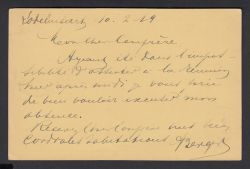 Lodelinsart 10-2-19
Mon cher Confrère
Ayant été dans l'impos-
sibilité d'assister à la réunion
hier après midi je vous prie
de bien vouloir excuser mon
absence.
Recevez Cher Confrère mes bien
cordiales salutations.